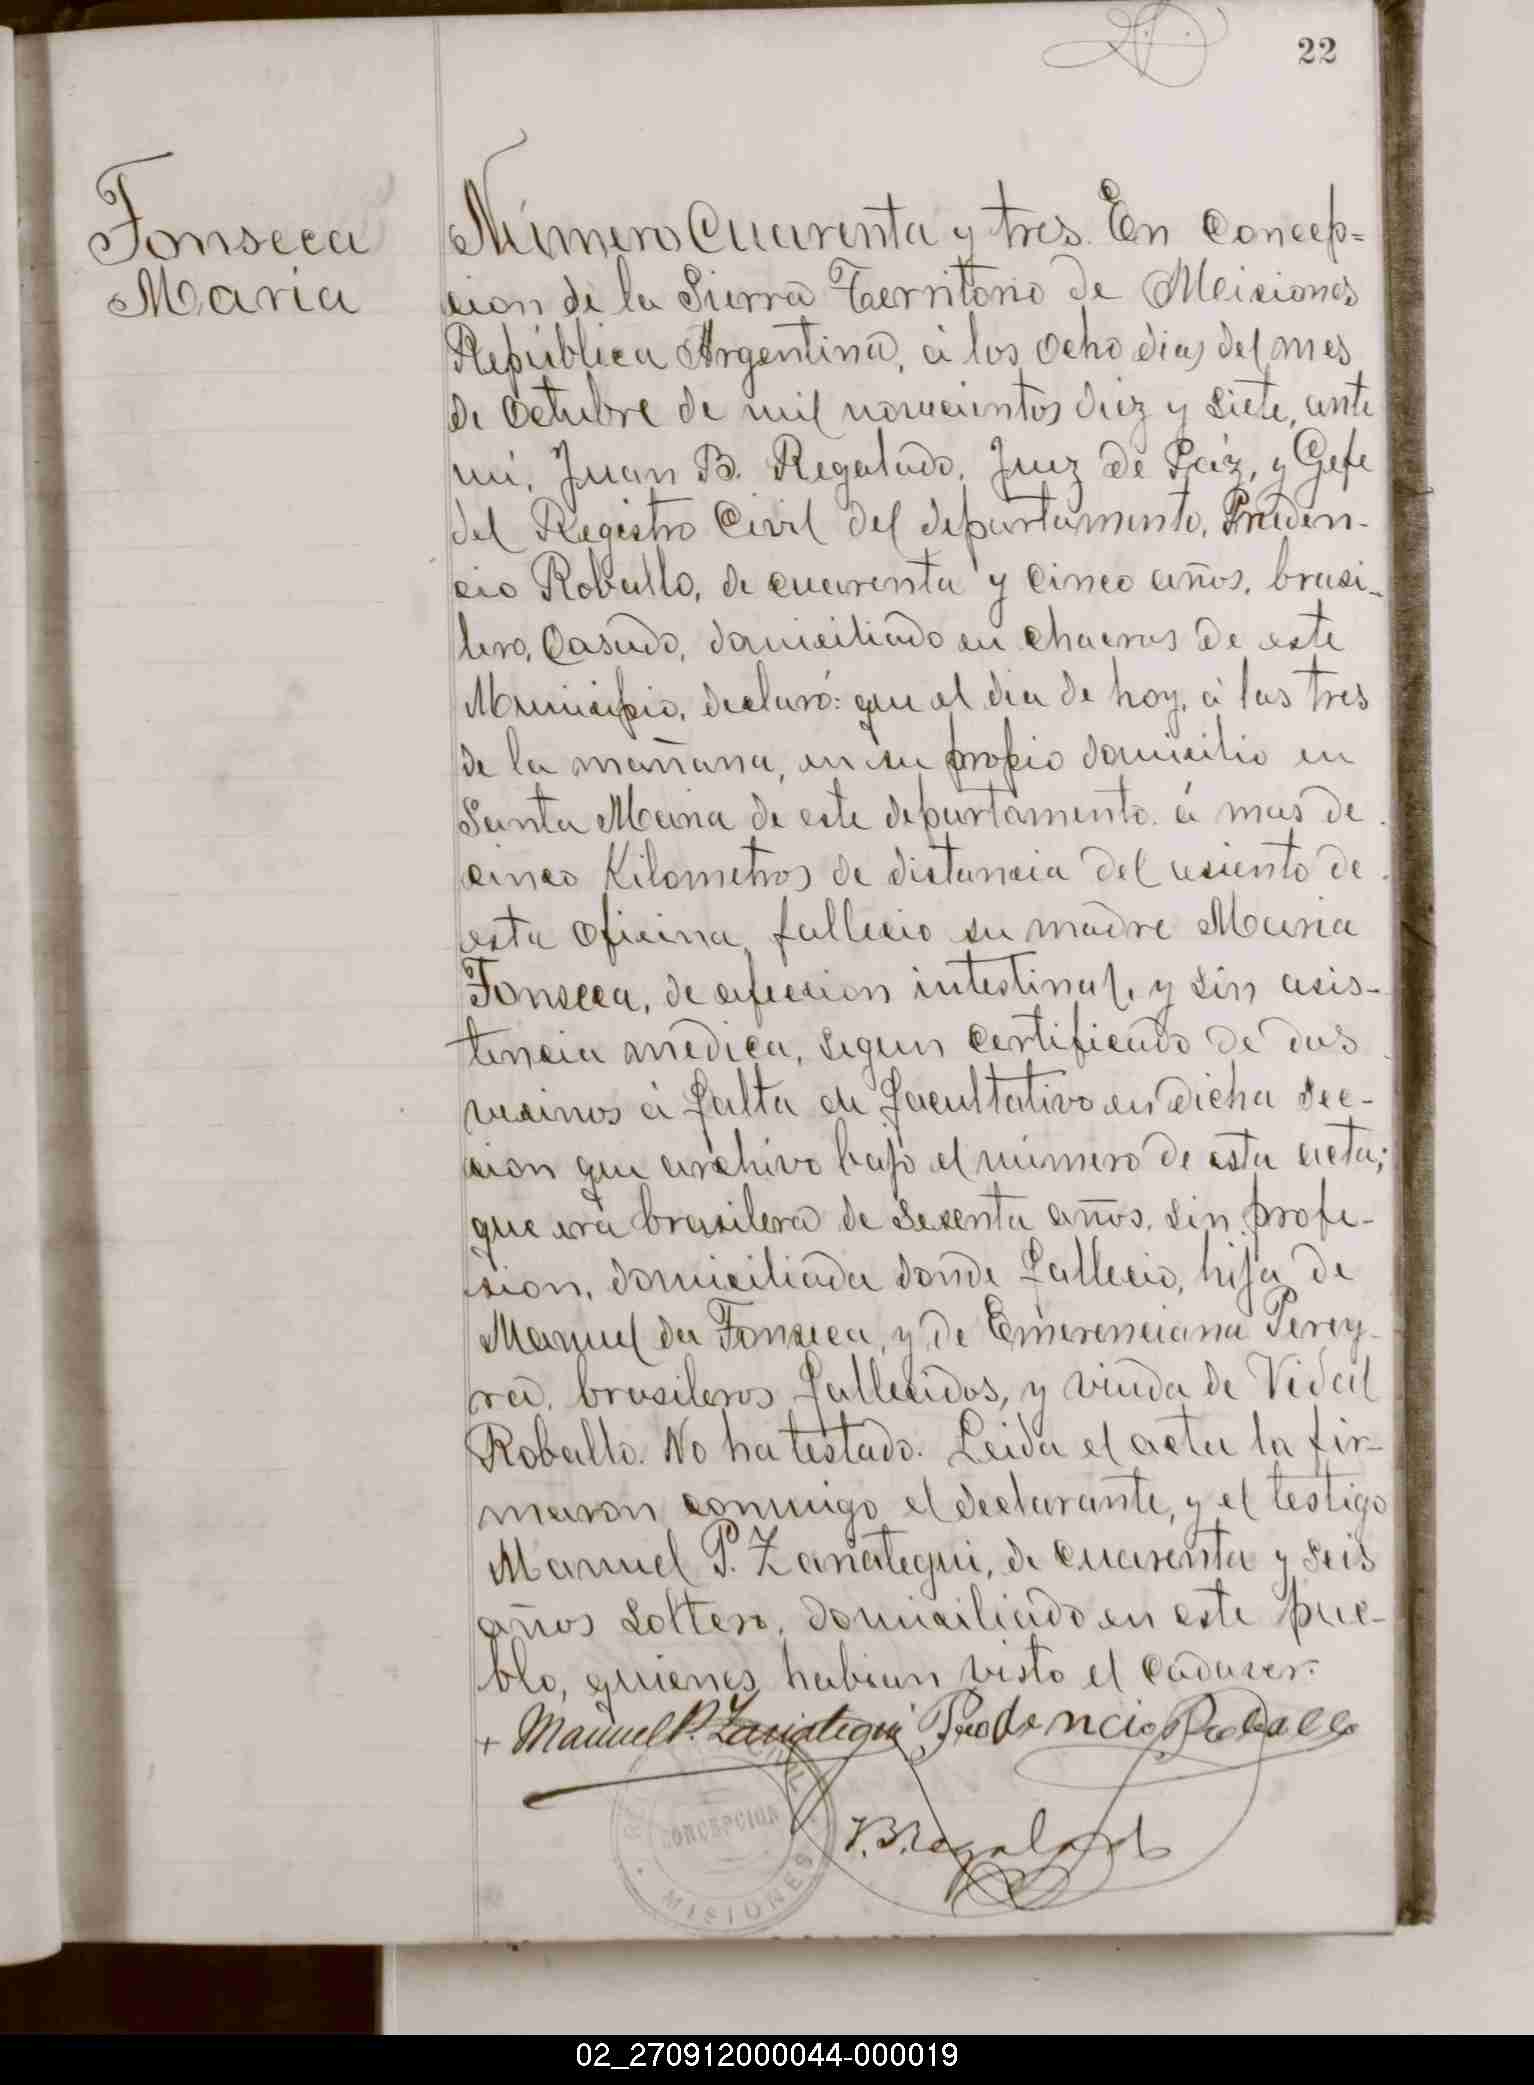 22
Fonseca
María
Número Cuarenta y tres. En Concep=
cion de la Sierra Territorio de Misiones
República Argentina, á los ocho dias del mes
de Octubre de mil novecientos diez y siete, ante
mí, Juan B. Regalado, Juez de Páz, y Gefe
del Registro Civil del departamento, Pruden-
cio Roballo, de cuarenta y cinco años, brasi-
lero, Casado, domiciliado en chacras de este
Municipio, declaró: que el dia de hoy, á las tres
de la mañana, en su propio domicilio en
Santa Maria de este departamento á mas de
cinco Kilometros de distancia del asiento de
esta Oficina, fallecio su madre Maria
Fonseca, de afeccion intestinal, y sin asis-
tencia medica, segun certificado de dos
vecinos á falta de facultativo en dicha sec-
cion que archivo bajo el número de esta acta;
que era brasilera de sesenta años, sin profe-
sion, domiciliada donde fallecio, hija de
Manuel da Fonseca, y de Emerenciana Perey-
ra, brasileros fallecidos, y viuda de Vidal
Roballo. No ha testado. Leida el acta la fir-
maron conmigo el declarante, y el testigo
Manuel P. Zariategui, de cuarenta y seis
años soltero, domiciliado en este pue-
blo, quienes habian visto el cadaver.
+ Manuel P. Zariategui Prodencio Roballo
J. B. Regalado
CONCEPCION
MISIONES
02_270912000044-000019